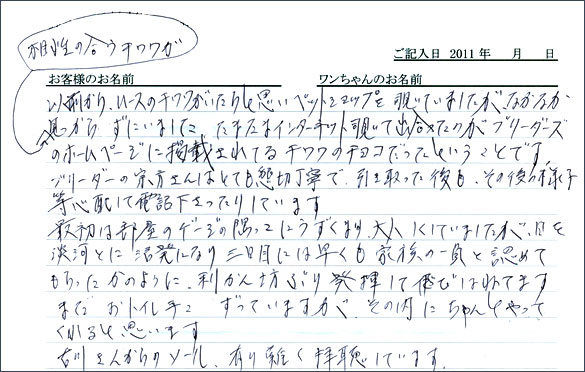 相性の合うチワワが
ご記入日 2011年 月 日
お客様のお名前 ワンちゃんのお名前
以前から、ロースのチワワがいたらと思いペットショップを覗いていましたが、なかなか
見つからずにいました たまたまインターネット覗いて出合ったのがブリーダーズ
のホームページに掲載されてるチワワのチョコだったということです。
ブリーダーの 方さんはとても懇切丁寧で、引き取った後も、その後の様子
等心配して電話下さったりしています
最初は部屋のゲージの隅っこにうずくまり、大人しくていましたが、日を
追うごとに活発になり三日目には早くも家族の一員と認めて
もらったかのように、利かん坊ぶり発揮して飛びはねてます
まだおトイレ手こずっていますが、その内にちゃんとやって
くれると思います
古川さんからのメール、有り難く拝聴しています。